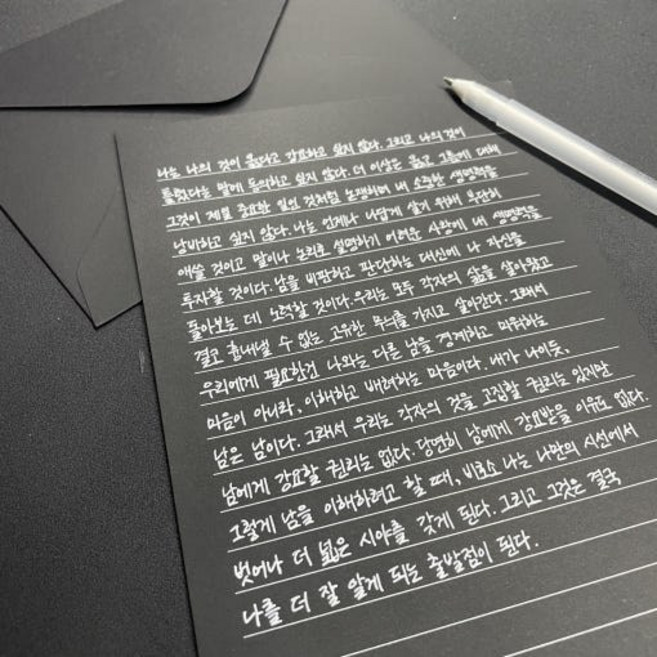 나는 나의 것이 옳다고 강요하고 싶지 않다. 그리고 나의 것이
틀렸다는 말에 동의하고 싶지 않다. 더 이상은 옳고 그름에 대해
그것이 제일 중요한 일인 것처럼 논쟁하며 내 소중한 생명력을
낭비하고 싶지 않다. 나는 언제나 나답게 살기 위해 부단히
애쓸 것이고 말이나 논리로 설명하기 어려운 사랑에 내 생명력을
투자할 것이다. 남을 비판하고 판단하는 대신에 나 자신을
돌아보는 데 노력할 것이다. 우리는 모두 각자의 삶을 살아왔고
결코 흉내낼 수 없는 고유한 무늬를 가지고 살아간다. 그래서
우리에게 필요한건 나와는 다른 남을 경계하고 미워하는
마음이 아니라, 이해하고 배려하는 마음이다. 내가 나이듯,
남은 남이다. 그래서 우리는 각자의 것을 고집할 권리는 있지만
남에게 강요할 권리는 없다. 당연히 남에게 강요받을 이유도 없다.
그렇게 남을 이해하려고 할 때, 비로소 나는 나만의 시선에서
벗어나 더 넓은 시야를 갖게 된다. 그리고 그것은 결국
나를 더 잘 알게 되는 출발점이 된다.